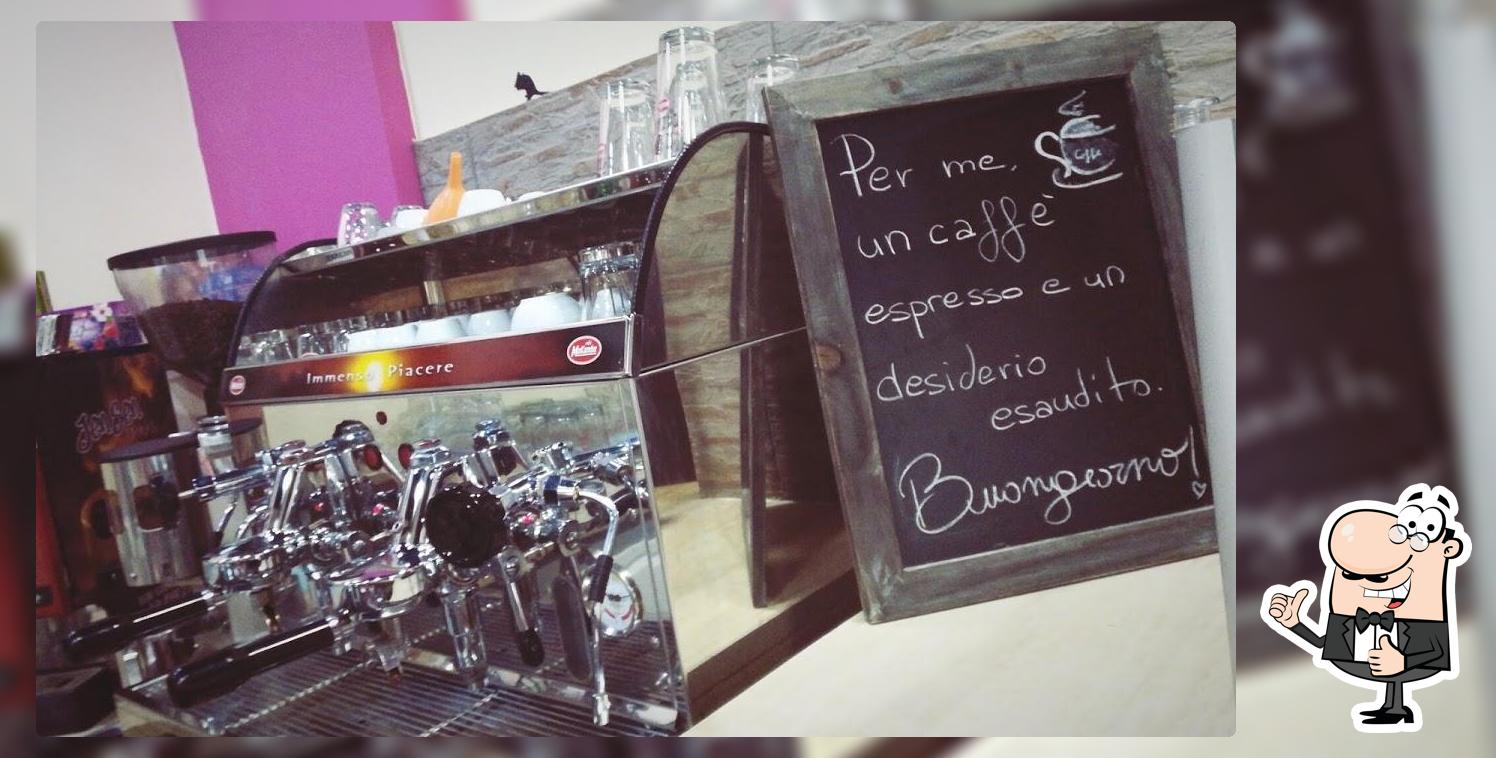 Per me,
un caffè
espresso e un
desiderio
esaudito.
Buongiorno!
Immenso Piacere